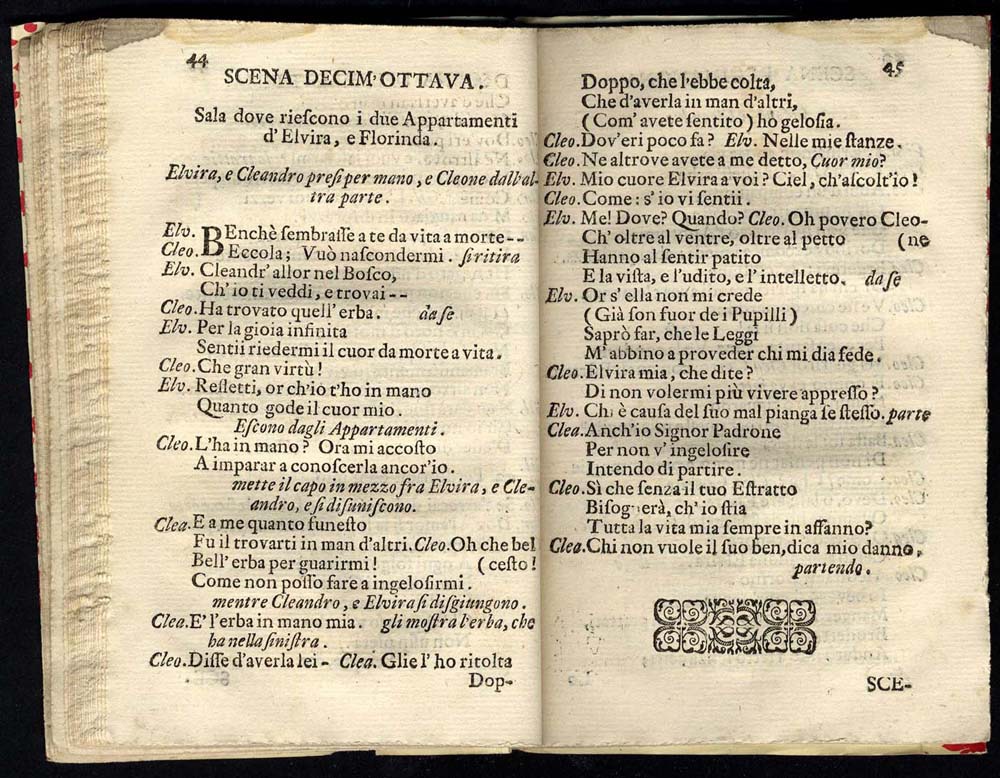 44
SCENA DECIM'OTTAVA.
Sala dove rieſcono i due Appartamenti
d'Elvira, e Florinda.
Elvira, e Cleandro preſi per mano, e Cleone dall'al-
tra parte.
Elv. BEnchè ſembraſſe a te da vita a morte--
Cleo. Eccola; Vuò naſcondermi. ſi ritira
Elv. Cleandr' allor nel Boſco,
Ch' io ti veddi, e trovai --
Cleo. Ha trovato quell' erba. da ſe
Elv. Per la gioia infinita
Sentii riedermi il cuor da morte a vita.
Cleo. Che gran virtù!
Elv. Refletti, or ch'iò t'ho in mano
Quanto gode il cuor mio.
Eſcono dagli Appartamenti.
Cleo. L'ha in mano? Ora mi accoſto
A imparar a conoſcerla ancor'io.
mette il capo in mezzo fra Elvira, e Cle-
andro, e ſi diſuniſcono.
Clea. E a me quanto funeſto
Fu il trovarti in man d'altri. Cleo. Oh che bel
Bell' erba per guarirmi! (ceſto!
Come non poſſo fare a ingeloſirmi.
mentre Cleandro, e Elvira ſi diſgiungono.
Clea. E' l'erba in mano mia. gli moſtra l'erba, che
ha nella ſiniſtra.
Cleo. Diſſe d'averla lei - Clea. Glie l' ho ritolta
Dop-
45
Doppo, che l'ebbe colta,
Che d'averla in man d'altri,
(Com' avete ſentito) hò geloſia.
Cleo. Dov'eri poco fa? Elv. Nelle mie ſtanze.
Cleo. Ne altrove avete a me detto, Cuor mio?
Elv. Mio cuore Elvira a voi? Ciel, ch'aſcolt'io!
Cleo. Come: s' io vi ſentii.
Elv. Me! Dove? Quando? Cleo. Oh povero Cleo-
Ch' oltre al ventre, oltre al petto (ne
Hanno al ſentir patito
E la viſta, e l'udito, e l' intelletto. da ſe
Elv. Or s' ella non mi crede
(Già ſon fuor de i Pupilli)
Saprò far, che le Leggi
M'abbino a proveder chi mi dia fede.
Cleo. Elvira mia, che dite?
Di non volermi più vivere appreſſo?
Elv. Chi è cauſa del ſuo mal pianga ſe ſteſſo. parte
Clea. Anch'io Signor Padrone
Per non v' ingeloſire
Intendo di partire.
Cleo. Sì che ſenza il tuo Eſtratto
Biſognerà, ch' io ſtia
Tutta la vita mia ſempre in affanno?
Clea. Chi non vuole il ſuo ben, dica mio danno.
partendo.
SCE-